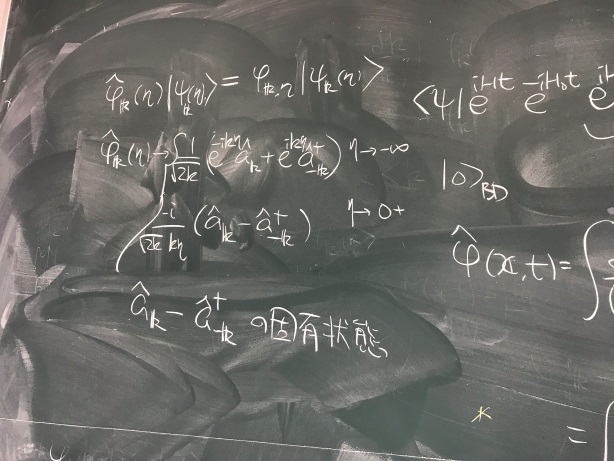 φ̂_k(η)|ψ_k(η)⟩ = φ_{k,η}|ψ_k(η)⟩
φ̂_k(η) → { 1/√2k (e^{-ikη} â_k + e^{ikη} â†_{-k}) η→-∞
-i/(√2k kη) (â_k - â†_{-k}) η→0+
â_k - â†_{-k} の固有状態
⟨ψ|e^{iHt} e^{-iH₀t}
|0⟩_BD
φ̂(x,t)=∫
*
=∫